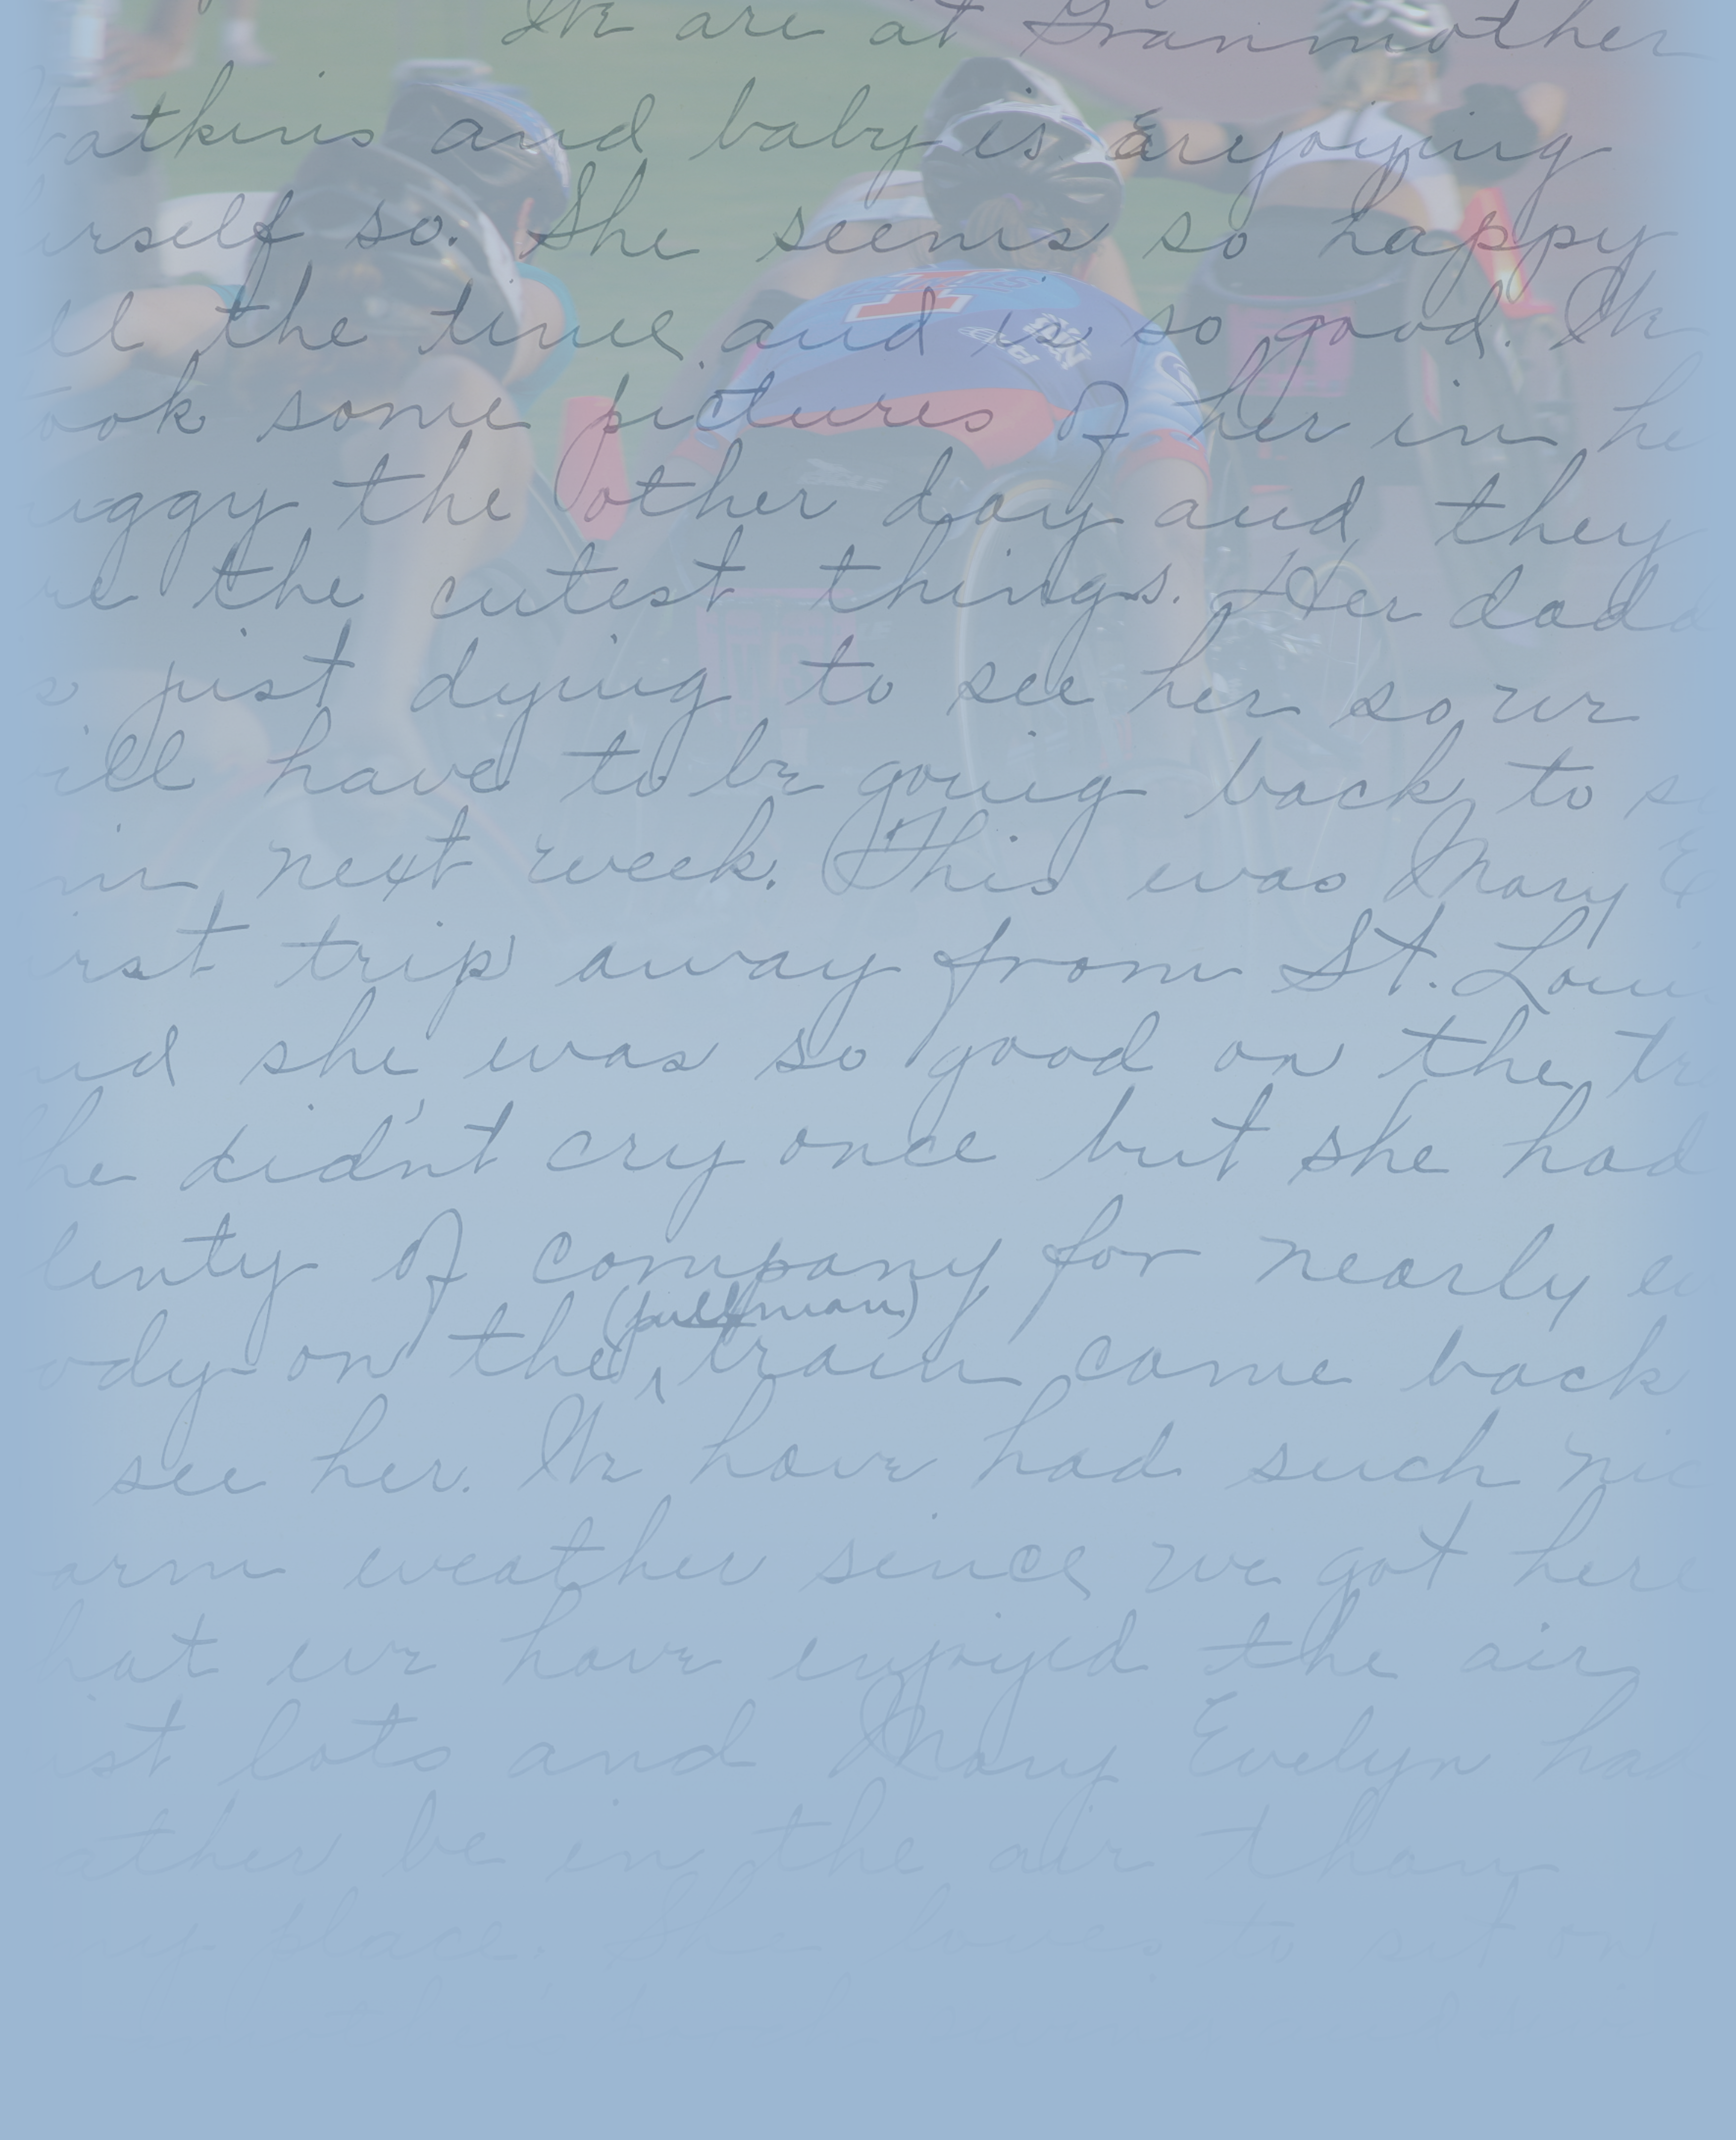 We are at Granmother
atkins and baby is enjoying
erself so. She seems so happy
ll the time and is so good. We
ook some pictures of her in he
uggy the other day and they
re the cutest things. Her dadd
s just dying to see her so we
ill have to be going back to s
in next week. This was Mary E
irst trip away from St. Loui
nd she was so good on the tr
he didn't cry once but she had
lenty of company for nearly e
(pullman)
ody on the train came back
see her. We have had such nic
arm weather since we got here
hat we have enjoyed the air
st lots and Mary Evelyn had
ather be in the air than
ny place. She loves to sit on